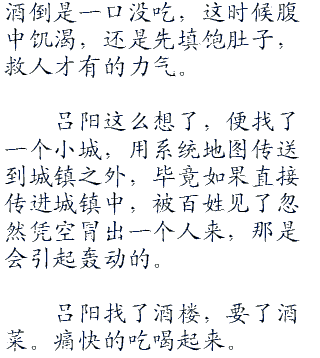 酒倒是一口没吃，这时候腹
中饥渴，还是先填饱肚子，
救人才有的力气。
吕阳这么想了，便找了
一个小城，用系统地图传送
到城镇之外，毕竟如果直接
传进城镇中，被百姓见了忽
然凭空冒出一个人来，那是
会引起轰动的。
吕阳找了酒楼，要了酒
菜。痛快的吃喝起来。